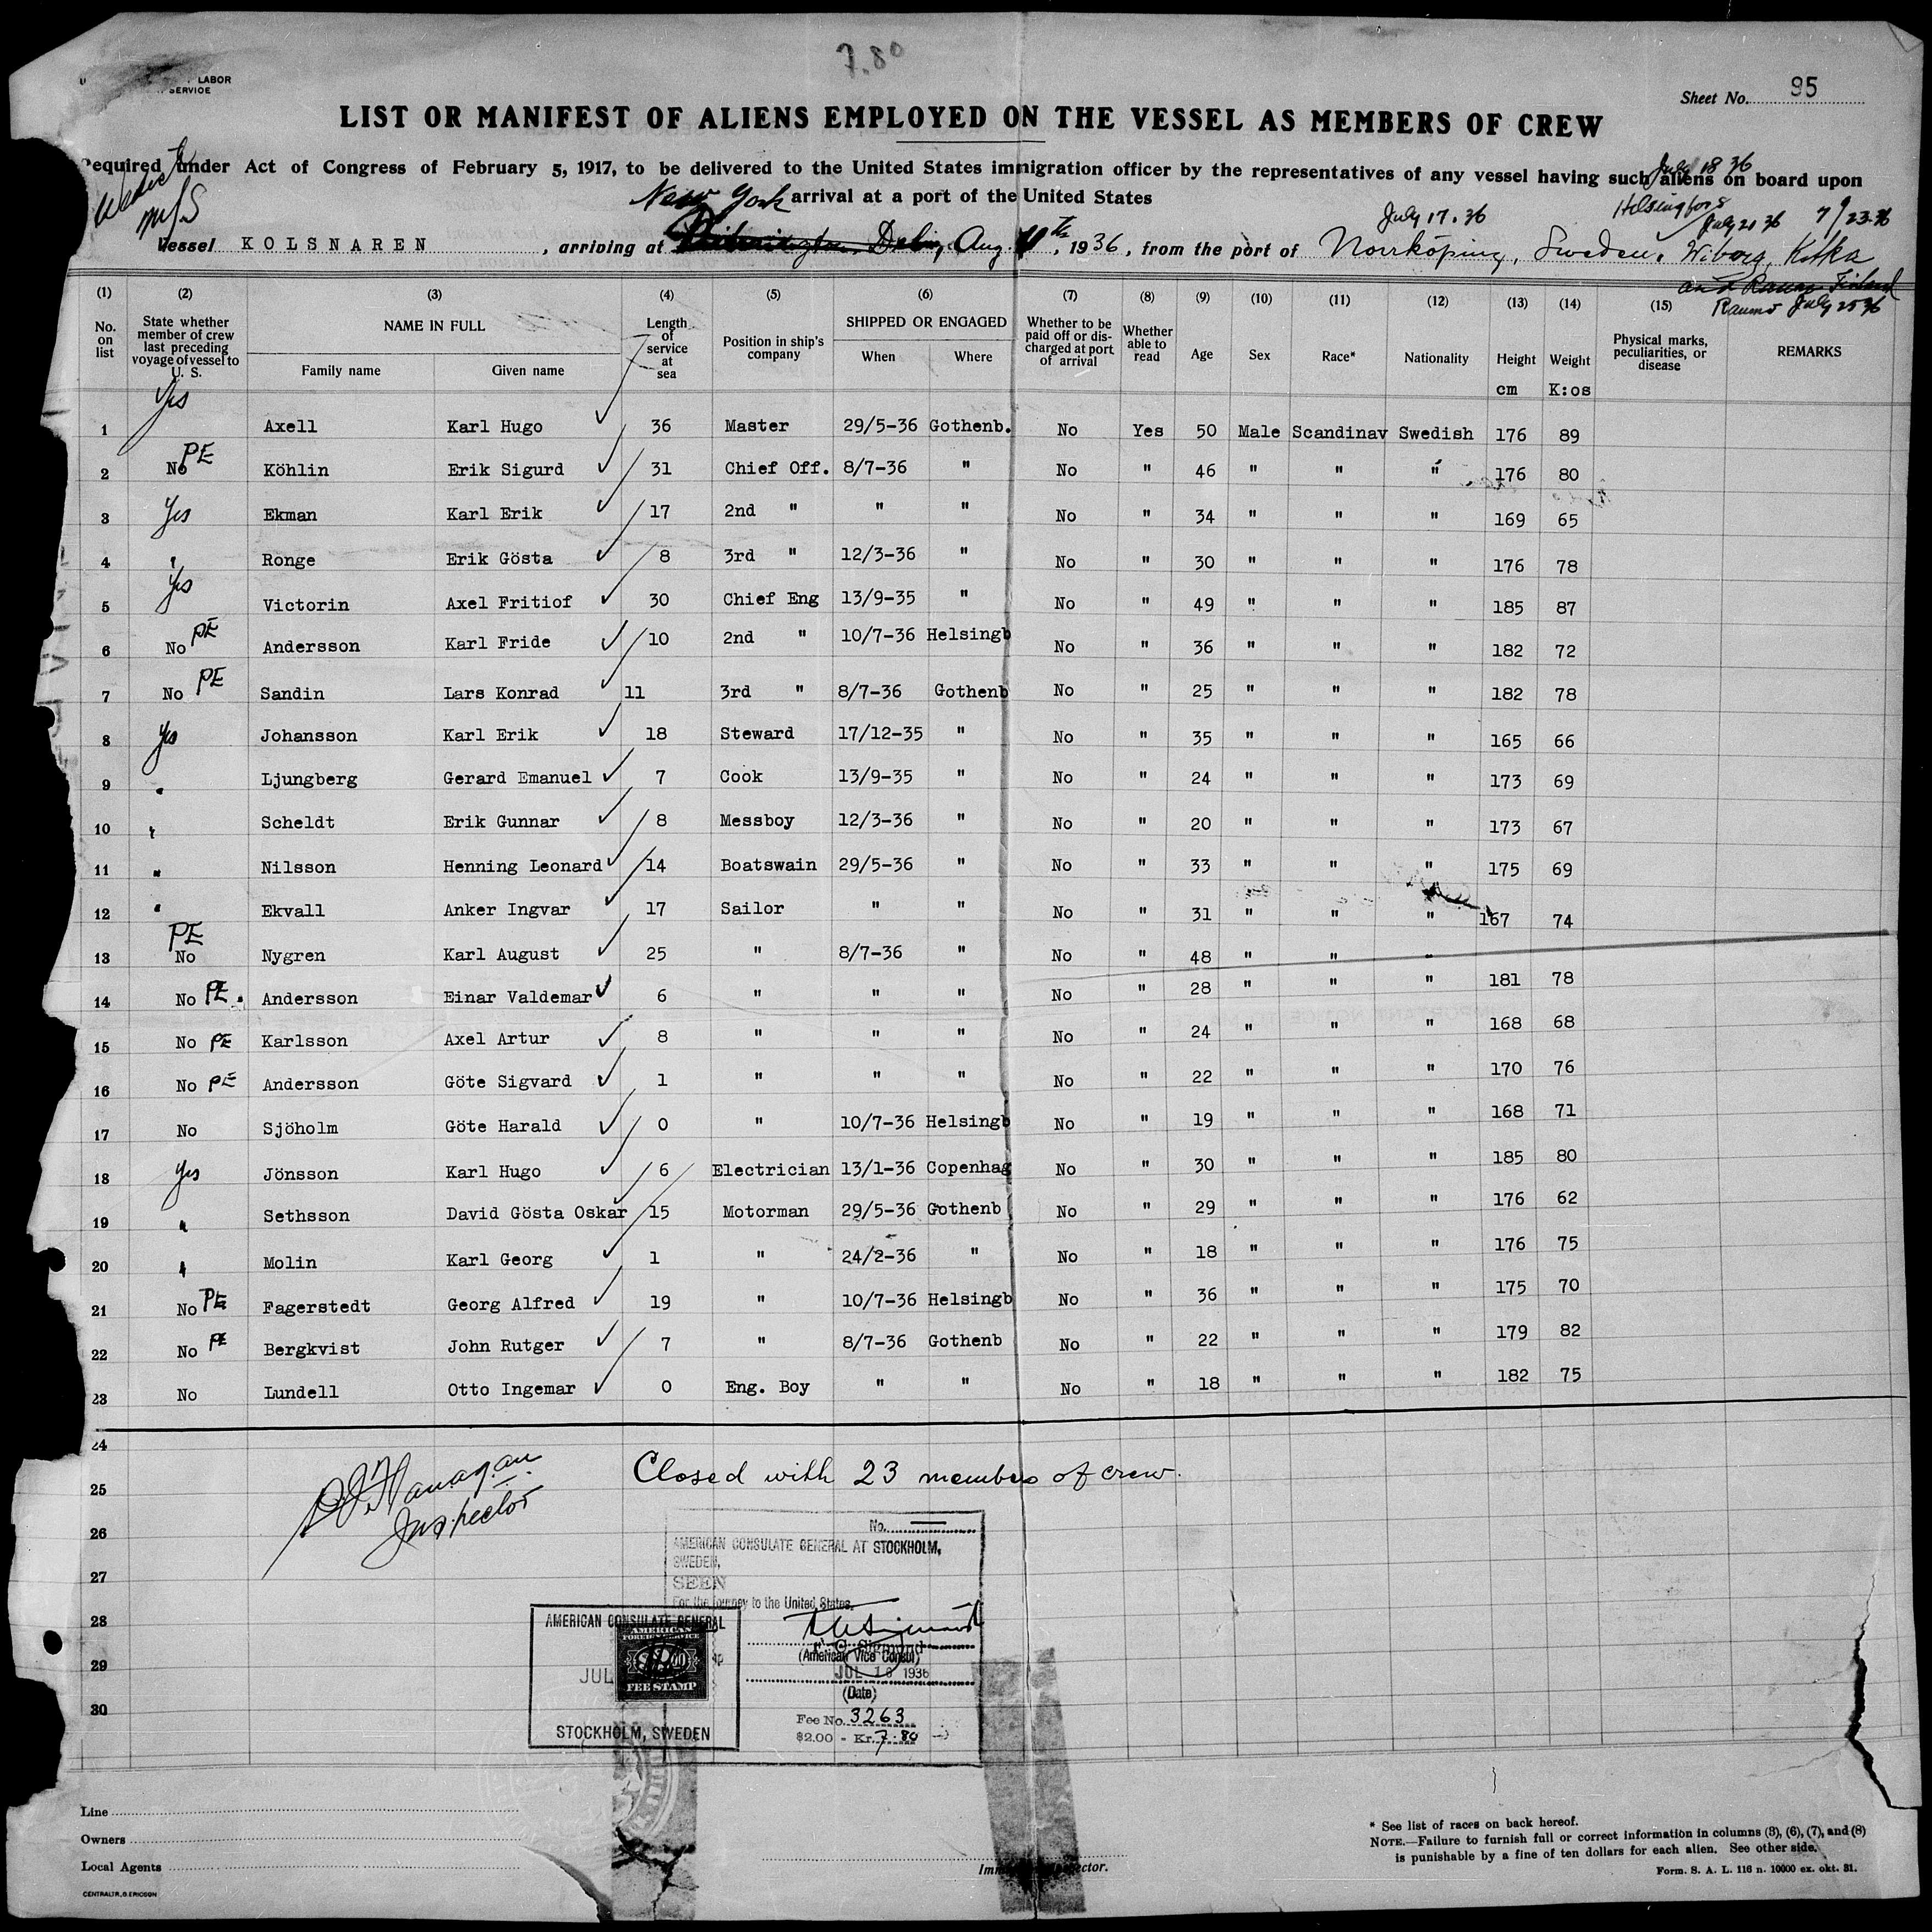 7.80
LABOR
SERVICE
Sheet No. 95
LIST OR MANIFEST OF ALIENS EMPLOYED ON THE VESSEL AS MEMBERS OF CREW
Required under Act of Congress of February 5, 1917, to be delivered to the United States immigration officer by the representatives of any vessel having such aliens on board upon
July 18 36
New York arrival at a port of the United States
m/s
July 17.36 Helsingfors July 21 36 7/23-36
Vessel KOLSNAREN, arriving at Aug. 11th, 1936, from the port of Norrköping, Sweden. Wiborg, Kotka
and Raumo Finland
Raumo July 25 36
(1) (2) (3) (4) (5) (6) (7) (8) (9) (10) (11) (12) (13) (14) (15)
No. on list
State whether member of crew last preceding voyage of vessel to U. S.
NAME IN FULL
Family name Given name
Length of service at sea
Position in ship's company
SHIPPED OR ENGAGED
When Where
Whether to be paid off or discharged at port of arrival
Whether able to read
Age Sex Race* Nationality Height Weight
Physical marks, peculiarities, or disease
REMARKS
cm K:os
1 Yes Axell Karl Hugo 36 Master 29/5-36 Gothenb. No Yes 50 Male Scandinav Swedish 176 89
2 No PE Köhlin Erik Sigurd 31 Chief Off. 8/7-36 " No " 46 " " " 176 80
3 Yes Ekman Karl Erik 17 2nd " " " No " 34 " " " 169 65
4 " Ronge Erik Gösta 8 3rd " 12/3-36 " No " 30 " " " 176 78
5 Yes Victorin Axel Fritiof 30 Chief Eng 13/9-35 " No " 49 " " " 185 87
6 No PE Andersson Karl Fride 10 2nd " 10/7-36 Helsingb No " 36 " " " 182 72
7 No PE Sandin Lars Konrad 11 3rd " 8/7-36 Gothenb No " 25 " " " 182 78
8 Yes Johansson Karl Erik 18 Steward 17/12-35 " No " 35 " " " 165 66
9 " Ljungberg Gerard Emanuel 7 Cook 13/9-35 " No " 24 " " " 173 69
10 " Scheldt Erik Gunnar 8 Messboy 12/3-36 " No " 20 " " " 173 67
11 " Nilsson Henning Leonard 14 Boatswain 29/5-36 " No " 33 " " " 175 69
12 " Ekvall Anker Ingvar 17 Sailor " " No " 31 " " " 167 74
13 PE No Nygren Karl August 25 " 8/7-36 " No " 48 " " "
14 No PE. Andersson Einar Valdemar 6 " " " No " 28 " " " 181 78
15 No PE Karlsson Axel Artur 8 " " " No " 24 " " " 168 68
16 No PE Andersson Göte Sigvard 1 " " " No " 22 " " " 170 76
17 No Sjöholm Göte Harald 0 " 10/7-36 Helsingb No " 19 " " " 168 71
18 Yes Jönsson Karl Hugo 6 Electrician 13/1-36 Copenhag No " 30 " " " 185 80
19 " Sethsson David Gösta Oskar 15 Motorman 29/5-36 Gothenb No " 29 " " " 176 62
20 " Molin Karl Georg 1 " 24/2-36 " No " 18 " " " 176 75
21 No PE Fagerstedt Georg Alfred 19 " 10/7-36 Helsingb No " 36 " " " 175 70
22 No PE Bergkvist John Rutger 7 " 8/7-36 Gothenb No " 22 " " " 179 82
23 No Lundell Otto Ingemar 0 Eng. Boy " " No " 18 " " " 182 75
24
25 Closed with 23 members of crew.
Flanagan
Inspector
26
27
28
29
30
No.
AMERICAN CONSULATE GENERAL AT STOCKHOLM,
SWEDEN,
SEEN
For the journey to the United States.
(American Vice Consul)
JUL 1936
(Date)
Fee No. 3263
$2.00 - Kr. 7.80
AMERICAN CONSULATE GENERAL
JUL
AMERICAN
FOREIGN SERVICE
FEE STAMP
STOCKHOLM, SWEDEN
Line
Owners
Local Agents
CENTRALTR., G. ERICSON
Immigrant Inspector.
* See list of races on back hereof.
NOTE.—Failure to furnish full or correct information in columns (3), (6), (7), and (8)
is punishable by a fine of ten dollars for each alien. See other side.
Form. S. A. L. 116 n. 10000 ex. okt. 31.